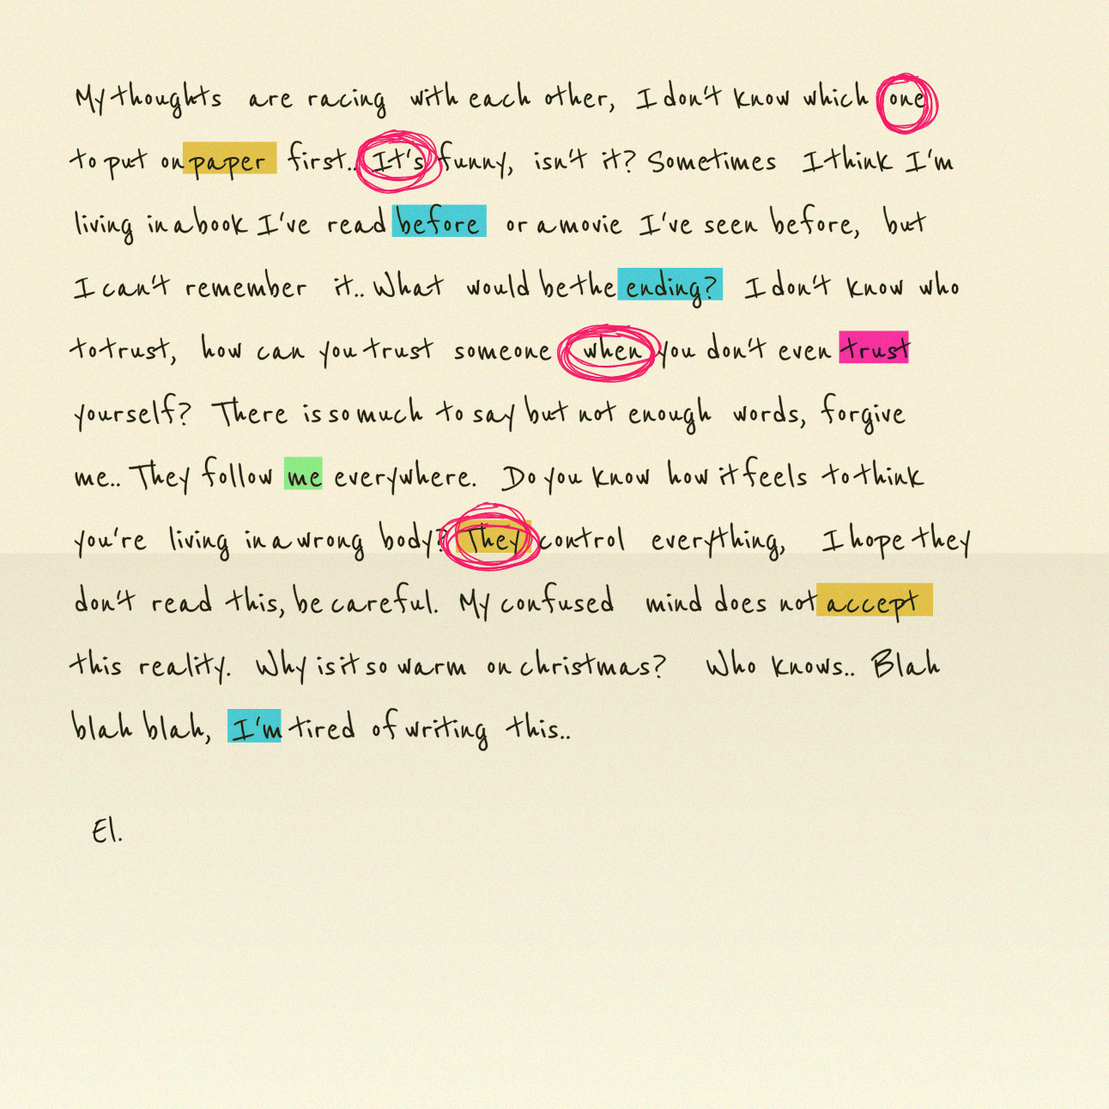 My thoughts are racing with each other, I don't know which one
to put on paper first.. It's funny, isn't it? Sometimes I think I'm
living in a book I've read before or a movie I've seen before, but
I can't remember it.. What would be the ending? I don't know who
to trust, how can you trust someone when you don't even trust
yourself? There is so much to say but not enough words, forgive
me.. They follow me everywhere. Do you know how it feels to think
you're living in a wrong body? They control everything, I hope they
don't read this, be careful. My confused mind does not accept
this reality. Why is it so warm on christmas? Who knows.. Blah
blah blah, I'm tired of writing this..
El.